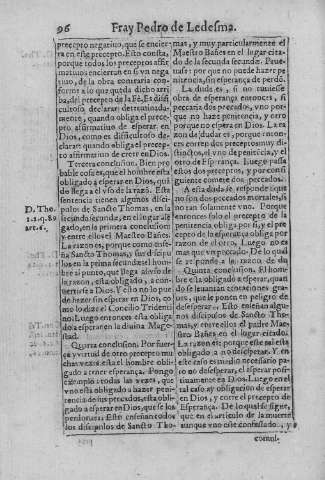 96 Fray Pedro de Ledesma.
precepto negatiuo, que se encier-
ra en esse precepto. Esto consta,
porque todos los preceptos affir-
matiuos encierran en si vn nega
tiuo, de la obra contraria con-
forme a lo que queda dicho arri
ba, del precepto de la Fè. Es dificul
toso, declarar determinada-
mente, quando obliga el precep-
to affirmatiuo de esperar en
Dios, como es dificultoso de-
clarar quando obliga el precep-
to affirmatiuo de creer en Dios.
Tercera conclusion. Bien pro
bable cosa es, que el hombre està
obligado a esperar en Dios, quã
do llega a el vso de la razõ. Esta
sentencia tienen algunos disci-
D. Tho.
1.2.q.89
art.6.
pulos de Sancto Thomas, en la
secunda secundæ, en el lugar ale-
gado, en la primera conclusion
y entre ellos el Maestro Bañes.
La razon es, porque como ense-
ña Sancto Thomas, y sus discipu
los en la prima secundæ el hom-
bre al punto, que llega al vso de
razon, està obligado, a con-
uertirse a Dios. Y esto no lo pue
de hazer sin esperar en Dios, co
mo lo dize el Concilio Triden-
no. Luego entonces està obliga
do a esperar en la diuina Mage-
stad.
Quarta conclusion. Por fuer-
ça y virtud de otro precepto mu
chas vezes està el hombre obli-
gado a tener esperança. Pongo
exemplo: todas las vezes, que
vno està obligado a hazer peni-
tencia de sus peccados, està obli-
gado a esperar en Dios, que se los
perdonara. Esto enseñan todos
los discipulos de Sancto Tho-
mas, y muy particularmente el
Maestro Bañes en el lugar cita-
do de la secunda secundæ. Prue-
uase: por que no puede hazer pe
nitencia, sin esperar de perdon.
La duda es, si no tuuiesse
obra de esperança entonces, si
peccaria dos peccados, vno por-
que no haze penitencia, y otro
porque no espera en Dios. La ra
zon de dudar es, porque enton-
ces corren dos preceptos muy di-
stinctos, el vno de penitẽcia, y el
otro de Esperança. Luego passa
estos dos preceptos, y por consi
guiente comete dos peccados.
A esta duda se responde que
no son dos peccados morales, si
no tan solamente vno. Porque
entonces solo el precepto de la
penitencia obliga por si, y el pre
cepto de la esperança obliga por
razon de el otro. Luego no es
mas que vn peccado. De lo qual
se ha de poner a la razon de du
Quinta conclusion. El hom
bre està obligado a esperar, quan
do està incitado con tentaciones
graues, que le ponen en peligro de
desesperar. Esto enseñan algu-
nos discipulos de Sancto Tho-
mas, y entre ellos el padre Mae-
stro Bañes en el lugar citado.
La razon es: porque este tal està
obligado, a no desesperar. Y en
este caso es medio necessario pa-
ra no desesperar, el esperar posi-
tiuamente en Dios. Luego en el
tal caso ay obligacion de esperar
en Dios, y corre el precepto de
Esperança. De lo qual se sigue,
que en el articulo de la muerte
aunque vno estè confessado, y
comul-